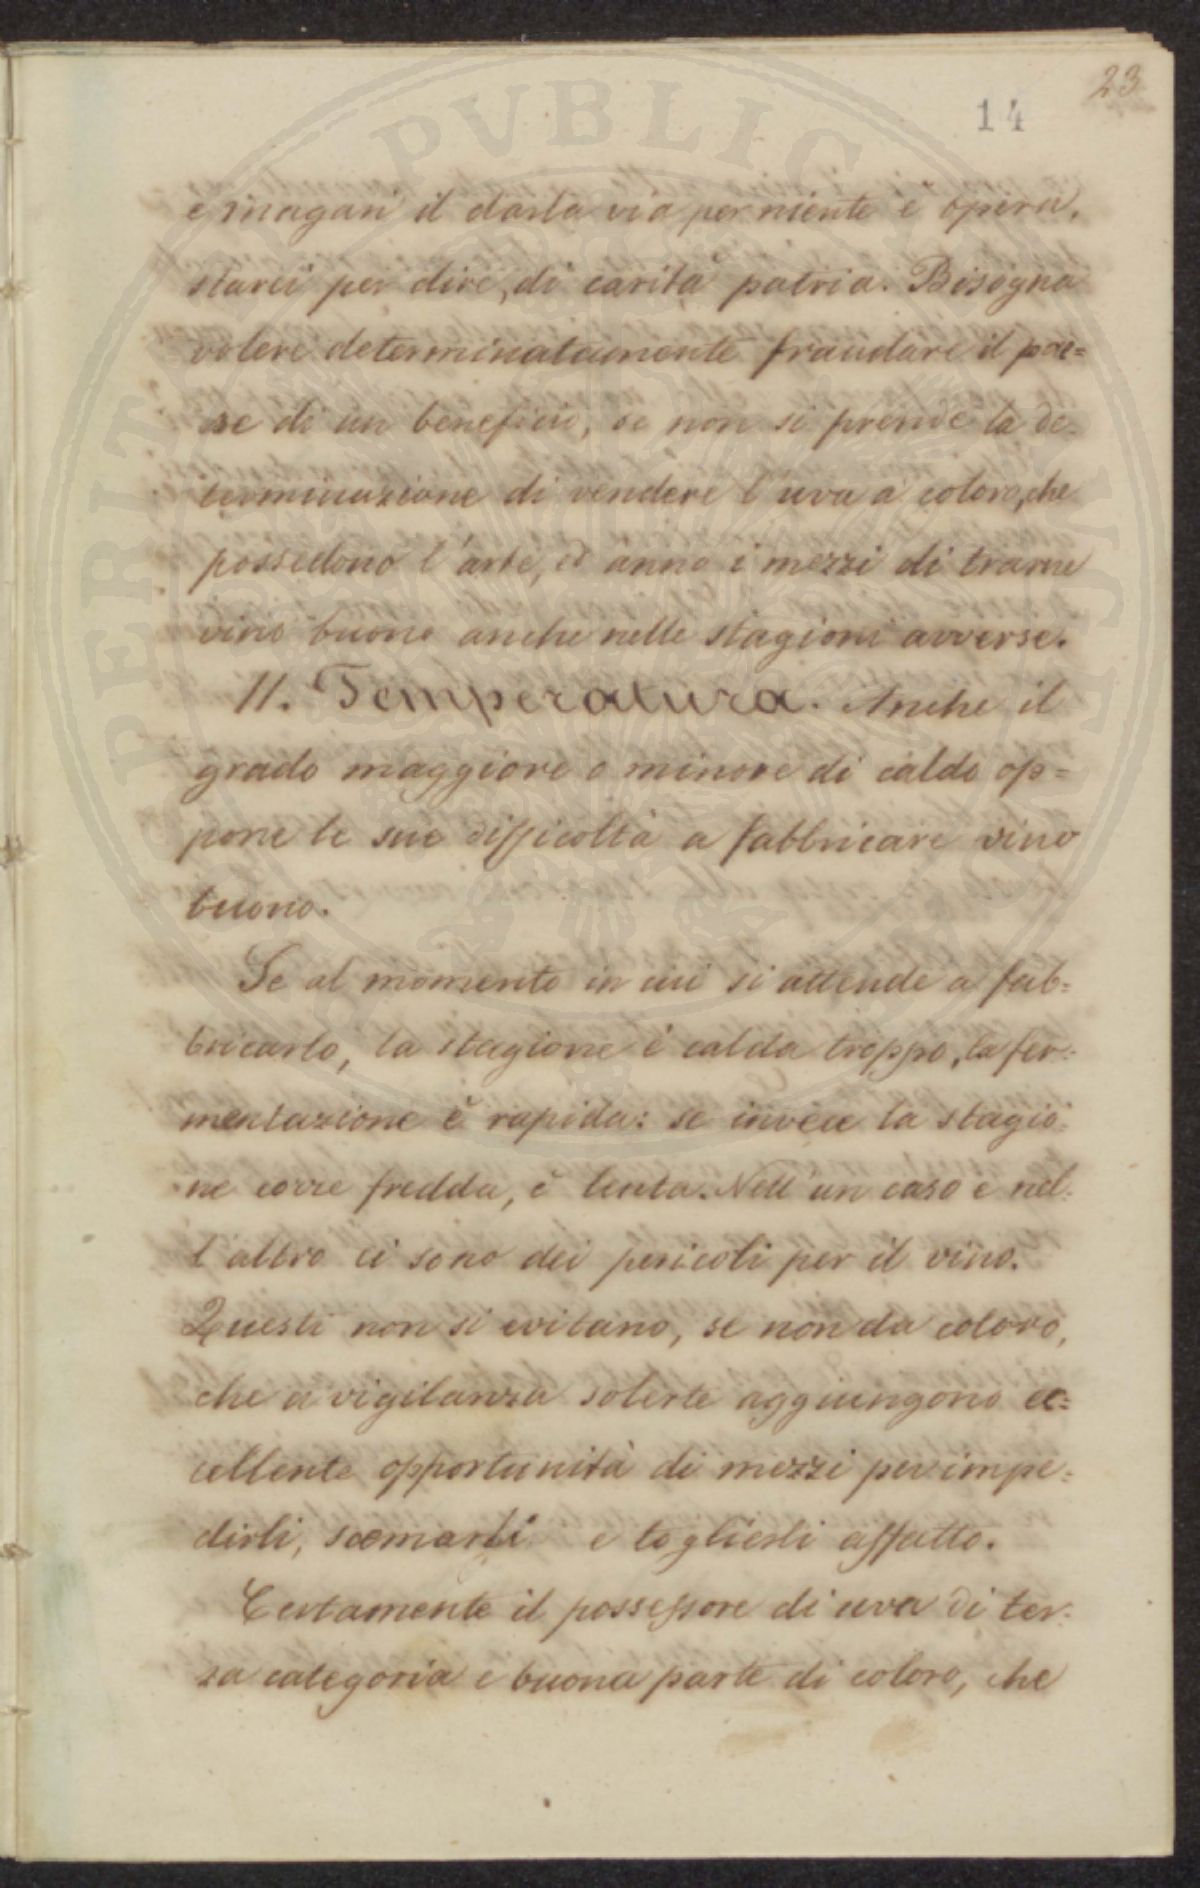 23
14
e magari il darla via per niente è opera,
starei per dire, di carità patria. Bisogna
volere determinatamente fraudare il pae=
se di un beneficio, se non si prende la de-
terminazione di vendere l'uva a coloro, che
possedono l'arte, ed anno i mezzi di trarne
vino buono anche nelle stagioni avverse.
11. Temperatura. Anche il
grado maggiore o minore di caldo op=
pone le sue difficoltà a fabbricare vino
buono.
Se al momento in cui si attende a fab=
bricarlo, la stagione è calda troppo, la fer=
mentazione è rapida: se invece la stagio=
ne corre fredda, è lenta. Nell'un caso e nel=
l'altro ci sono dei pericoli per il vino.
Questi non si evitano, se non da coloro,
che a vigilanza solerte aggiungono ec=
cellente opportunità di mezzi per impe=
dirli, scemarli e toglierli affatto.
Certamente il possessore di uva di ter=
za categoria e buona parte di coloro, che